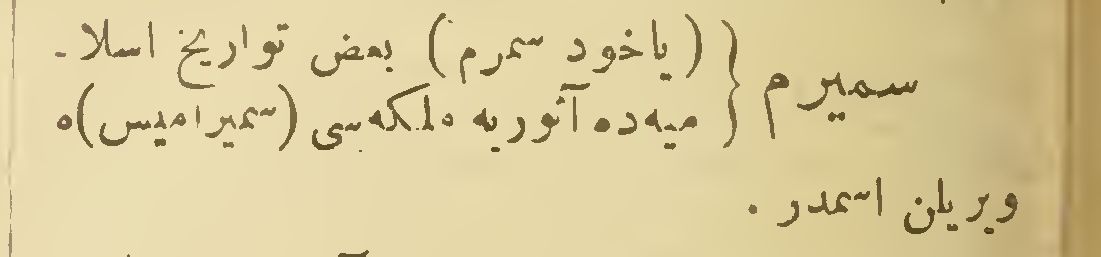 سمیرم { (یاخود سمرم) بعض تواریخ اسلا-
میه‌ده آثوریه ملکه‌سی (سمیرامیس)ه
ویریلن اسمدر .